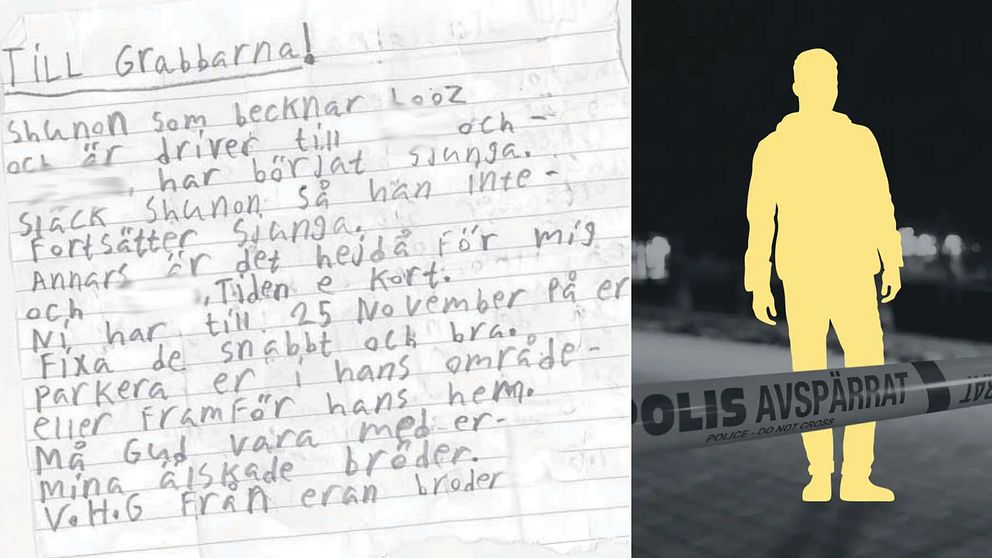 TILL Grabbarna!
Shunon som becknar Looz
och är driver till och-
, har börjat sjunga.
Släck Shunon så han inte-
Fortsätter sjunga.
Annars är det hejdå för mig
och , Tiden e kort.
Ni har till 25 November på er
Fixa de snabbt och bra.
parkera er i hans område-
eller framför hans hem.
Må Gud vara med er-
mina älskade bröder.
V.H.G Från eran broder
POLIS AVSPÄRRAT
POLICE - DO NOT CROSS